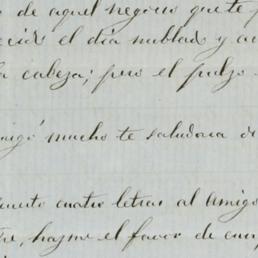 de aquel negocio que te
el día nublado y
la cabeza; pero el pulso
mucho te saludara
cuatro letras al Amigo
hazme el favor de